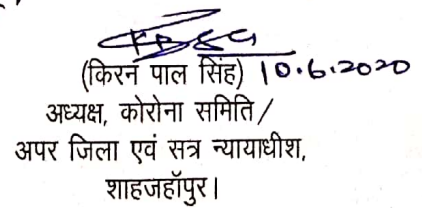 (किरन पाल सिंह) 10.6.2020
अध्यक्ष, कोरोना समिति/
अपर जिला एवं सत्र न्यायाधीश,
शाहजहॉपुर।